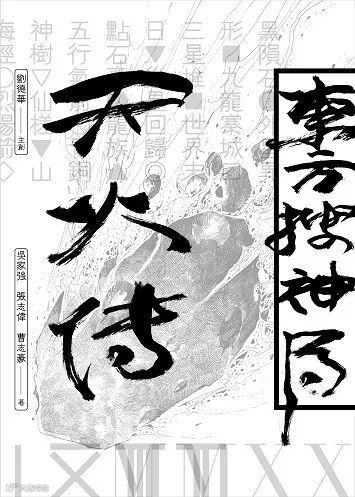 東方搜神局
天火傳
黑隕石
形■九龍寨城
三星堆■世界末
日▽回歸○
點石 龍族
五行氣 銅
神樹▽仙槎▽山
海經○烈陽箭◇
劉德華——主創
吳家強 張志偉 曹志豪 著